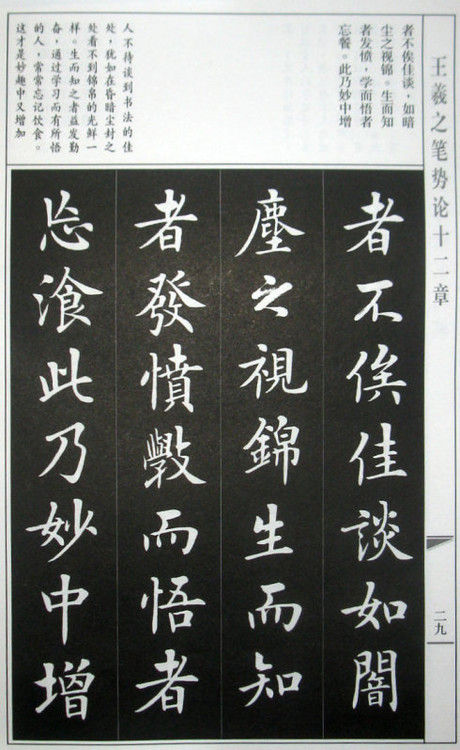 王羲之笔势论十二章
二九
者不俟佳谈，如暗
尘之视锦。生而知
者发愤，学而悟者
忘餐。此乃妙中增
人不待谈到书法的佳
处，犹如在昏暗尘封之
处看不到锦帛的光鲜一
样。生而知之者益发勤
奋，通过学习而有所悟
的人，常常忘记饮食。
这才是妙趣中又增加
者不俟佳談如闇
塵之視錦生而知
者發憤斆而悟者
忘飡此乃妙中增